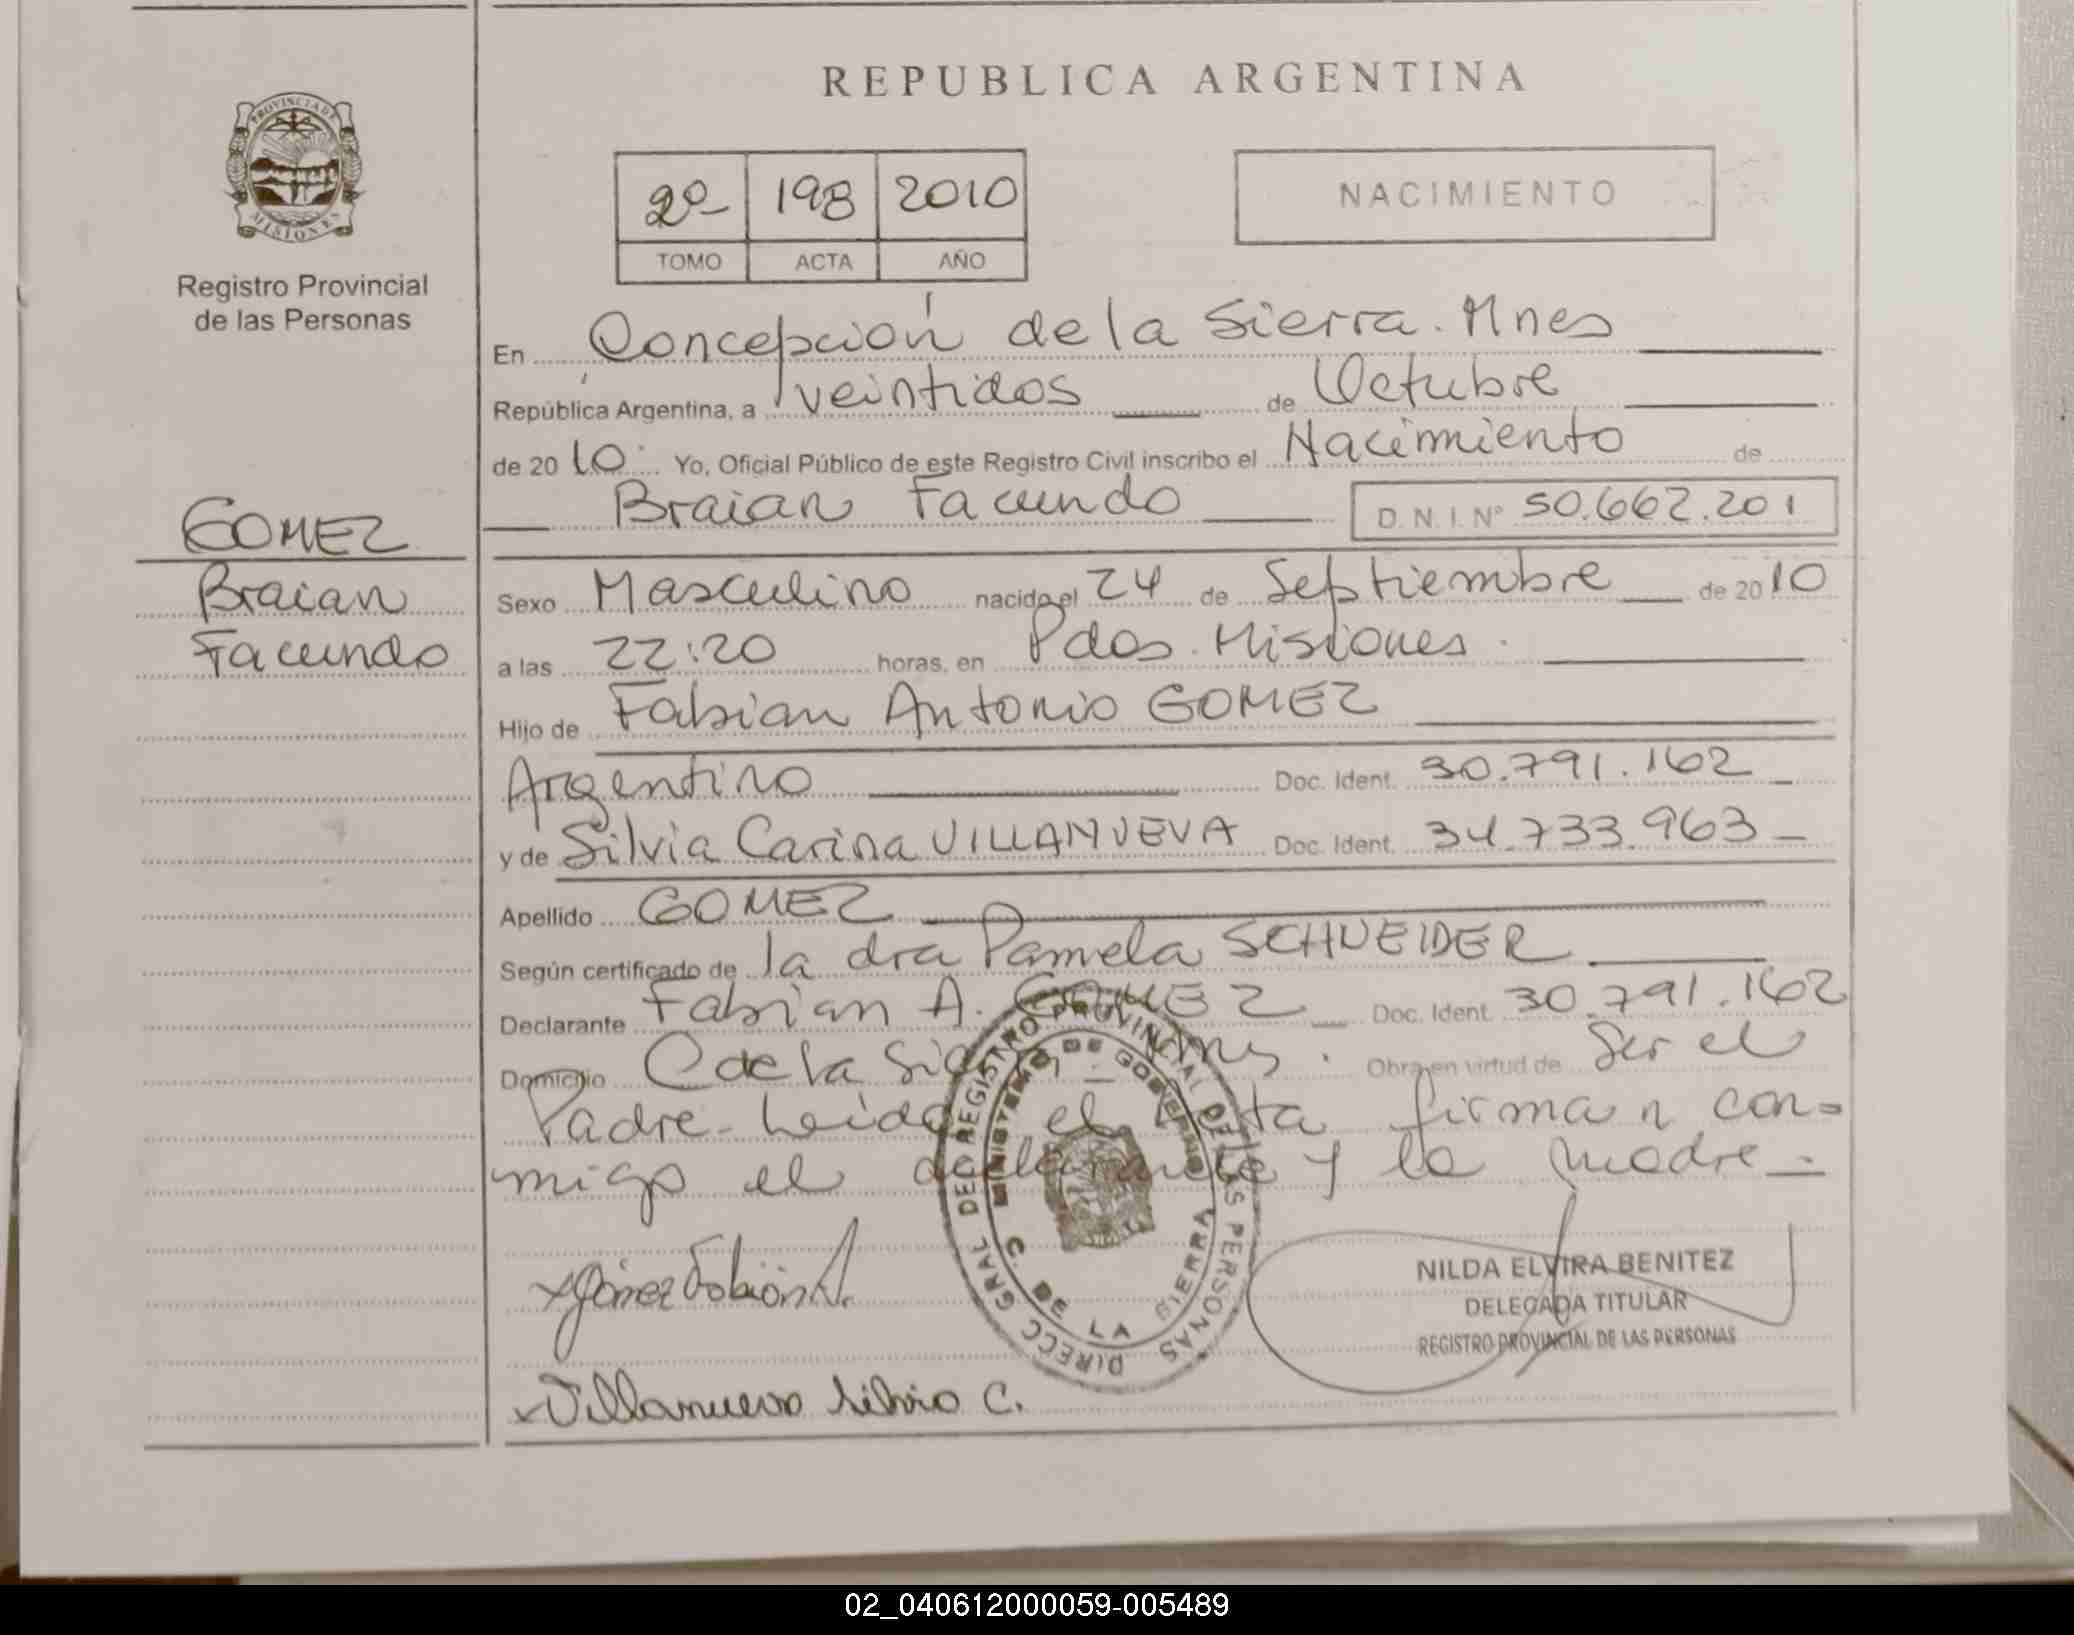 REPUBLICA ARGENTINA
PROVINCIA DE
MISIONES
Registro Provincial
de las Personas
2º 198 2010
TOMO ACTA AÑO
NACIMIENTO
En Concepción de la Sierra. Mnes
República Argentina, a veintidos de Octubre
de 2010 Yo, Oficial Público de este Registro Civil inscribo el Nacimiento de
Braian Facundo D.N.I. Nº 50.662.201
GOMEZ
Braian
Facundo
Sexo Masculino nacido el 24 de Septiembre de 2010
a las 22:20 horas, en Pdas. Misiones.
Hijo de Fabian Antonio GOMEZ
Argentino Doc. Ident. 30.791.162
y de Silvia Carina VILLANUEVA Doc. Ident. 34.733.963
Apellido GOMEZ
Según certificado de la dra Pamela SCHNEIDER
Declarante Fabian A. GOMEZ Doc. Ident. 30.791.162
Domicilio C de la Sierra Mnes. Obra en virtud de Ser el
Padre. Leida el Acta firman con=
migo el declarante y la madre.
DIRECC GRAL DEL REGISTRO PROVINCIAL DE LAS PERSONAS
MINISTERIO DE GOBIERNO
C. DE LA SIERRA
x Gómez Fabián A.
x Villanueva Silvia C.
NILDA ELVIRA BENITEZ
DELEGADA TITULAR
REGISTRO PROVINCIAL DE LAS PERSONAS
02_040612000059-005489